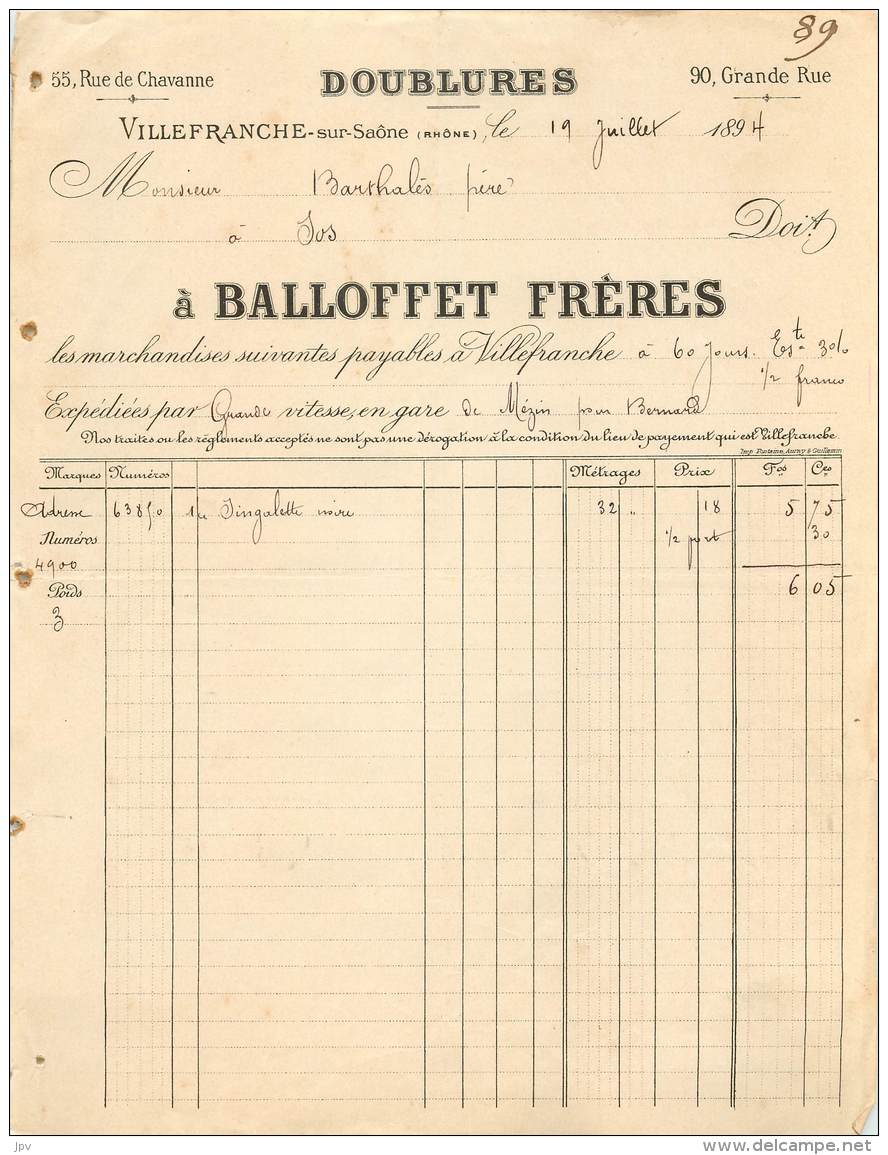 89
55, Rue de Chavanne DOUBLURES 90, Grande Rue
VILLEFRANCHE-sur-Saône (RHÔNE), le 19 Juillet 1894
Monsieur Barthalès père
à Sos Doit
à BALLOFFET FRÈRES
les marchandises suivantes payables à Villefranche à 60 jours. Es.te 3%
1/2 franco
Expédiées par Grande vitesse, en gare de Mézin pour Bernard
Nos traites ou les règlements acceptés ne sont pas une dérogation à la condition du lieu de payement qui est Villefranche.
Imp. Fontaine, Auray & Guillemin
Marques Numéros Métrages Prix Fcs Ces
Adresse 638/0 1 Singalette noire 32 " 18 5 75
Numéros 1/2 port 30
4900
Poids 6 05
3
jpv www.delcampe.net